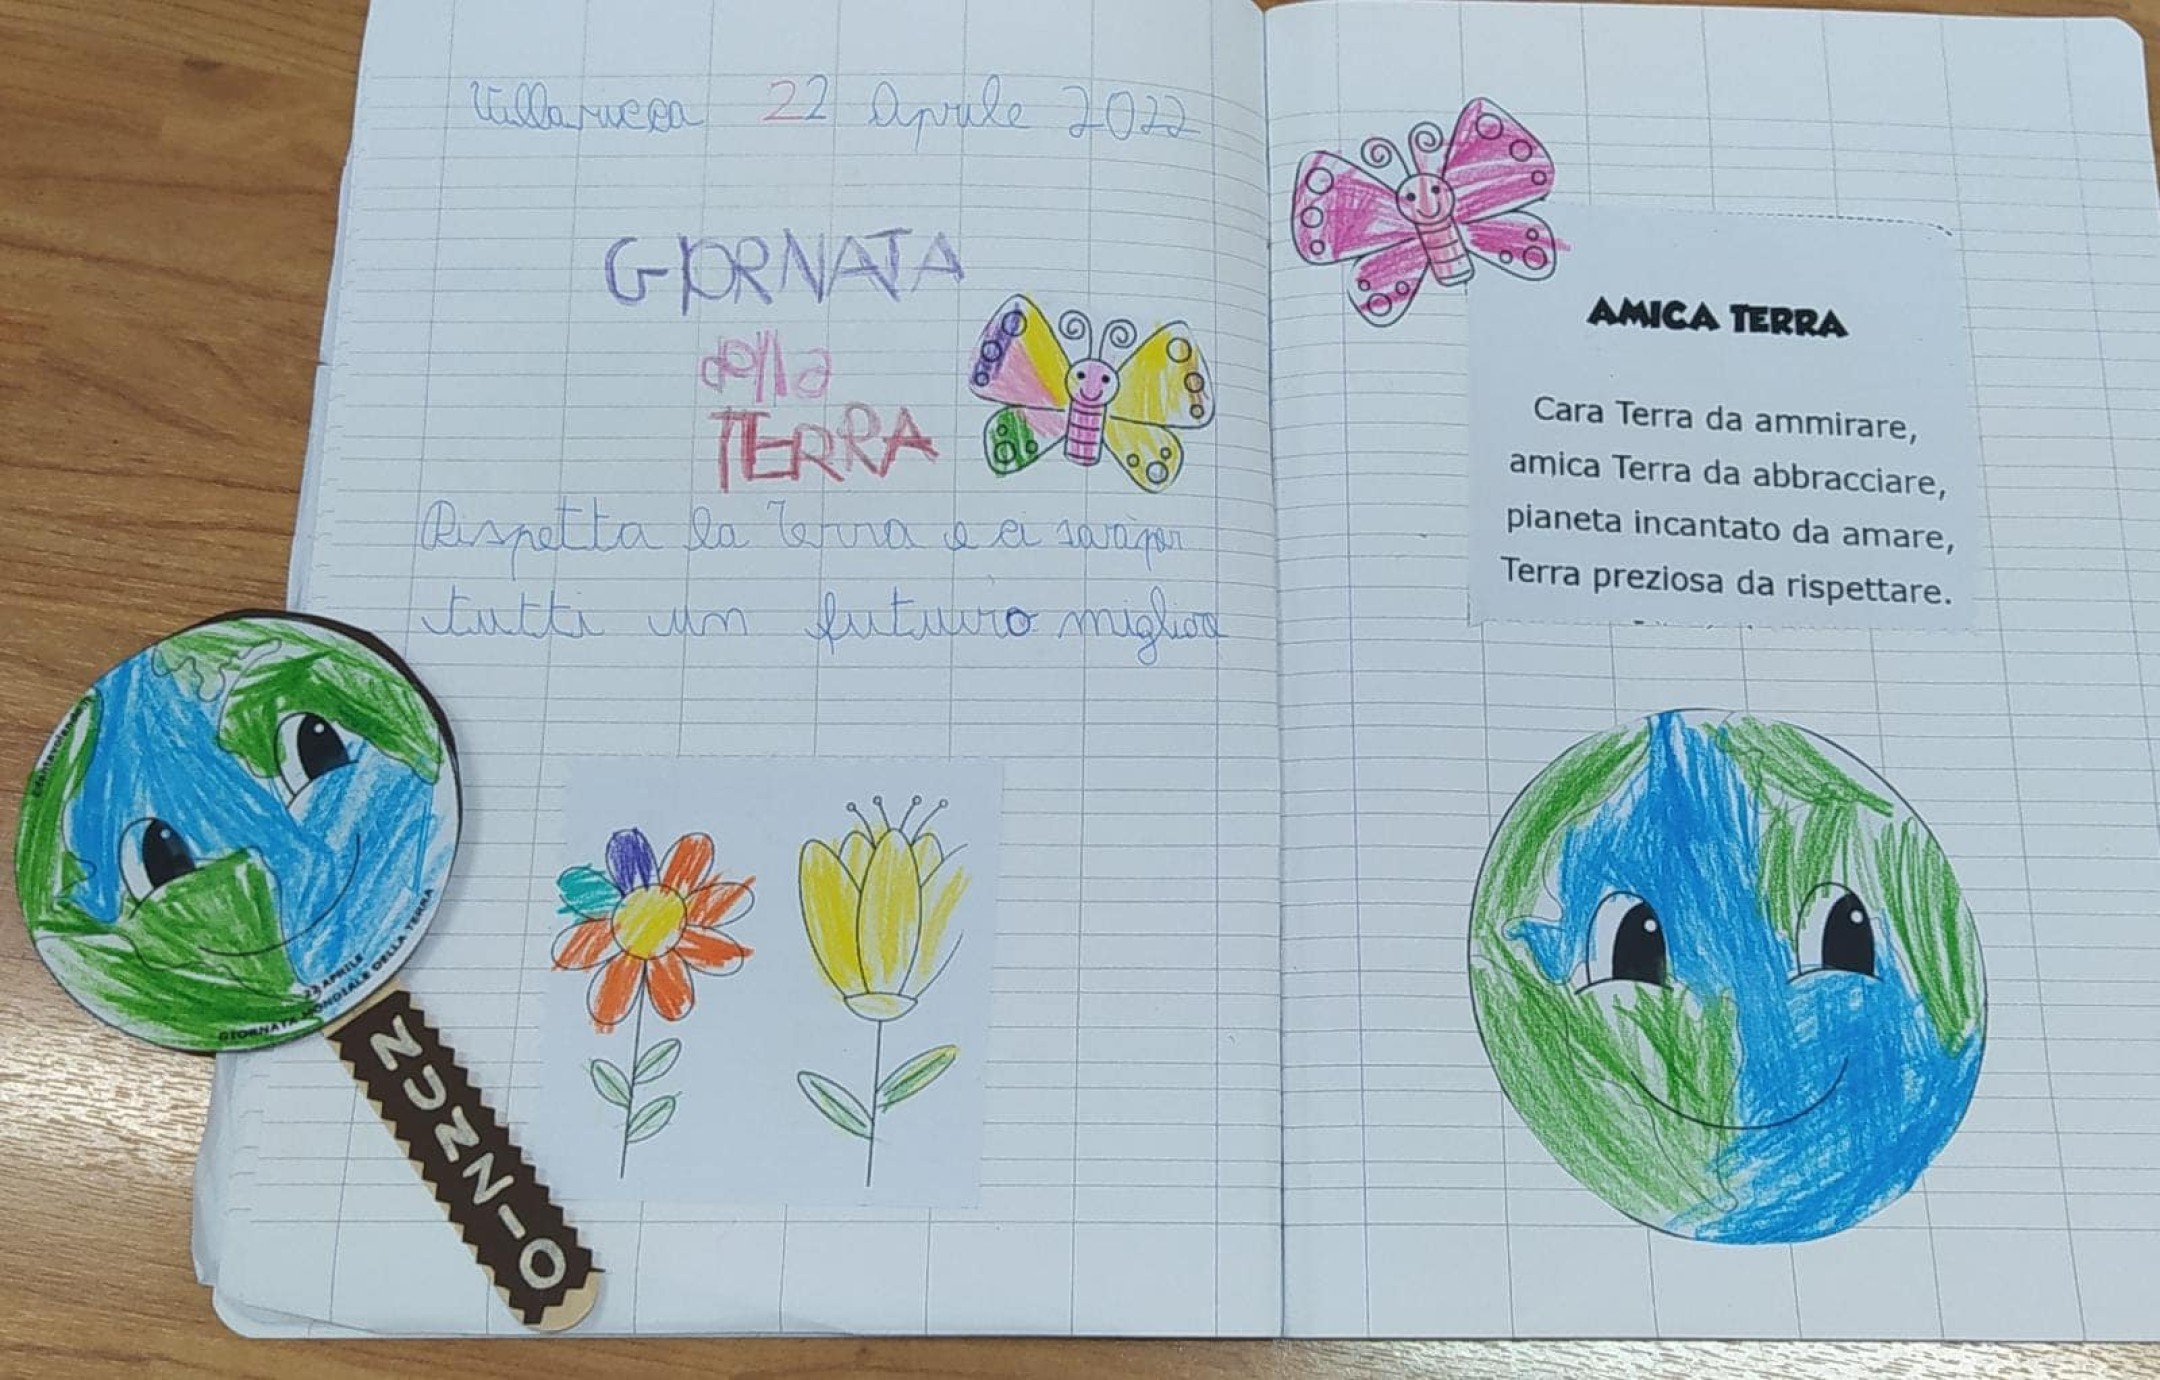 Villaricca 22 Aprile 2022
GIORNATA
della
TERRA
Rispetta la Terra e ci sarà per
tutti un futuro migliore
22 APRILE
GIORNATA MONDIALE DELLA TERRA
NUNZIO
AMICA TERRA
Cara Terra da ammirare,
amica Terra da abbracciare,
pianeta incantato da amare,
Terra preziosa da rispettare.